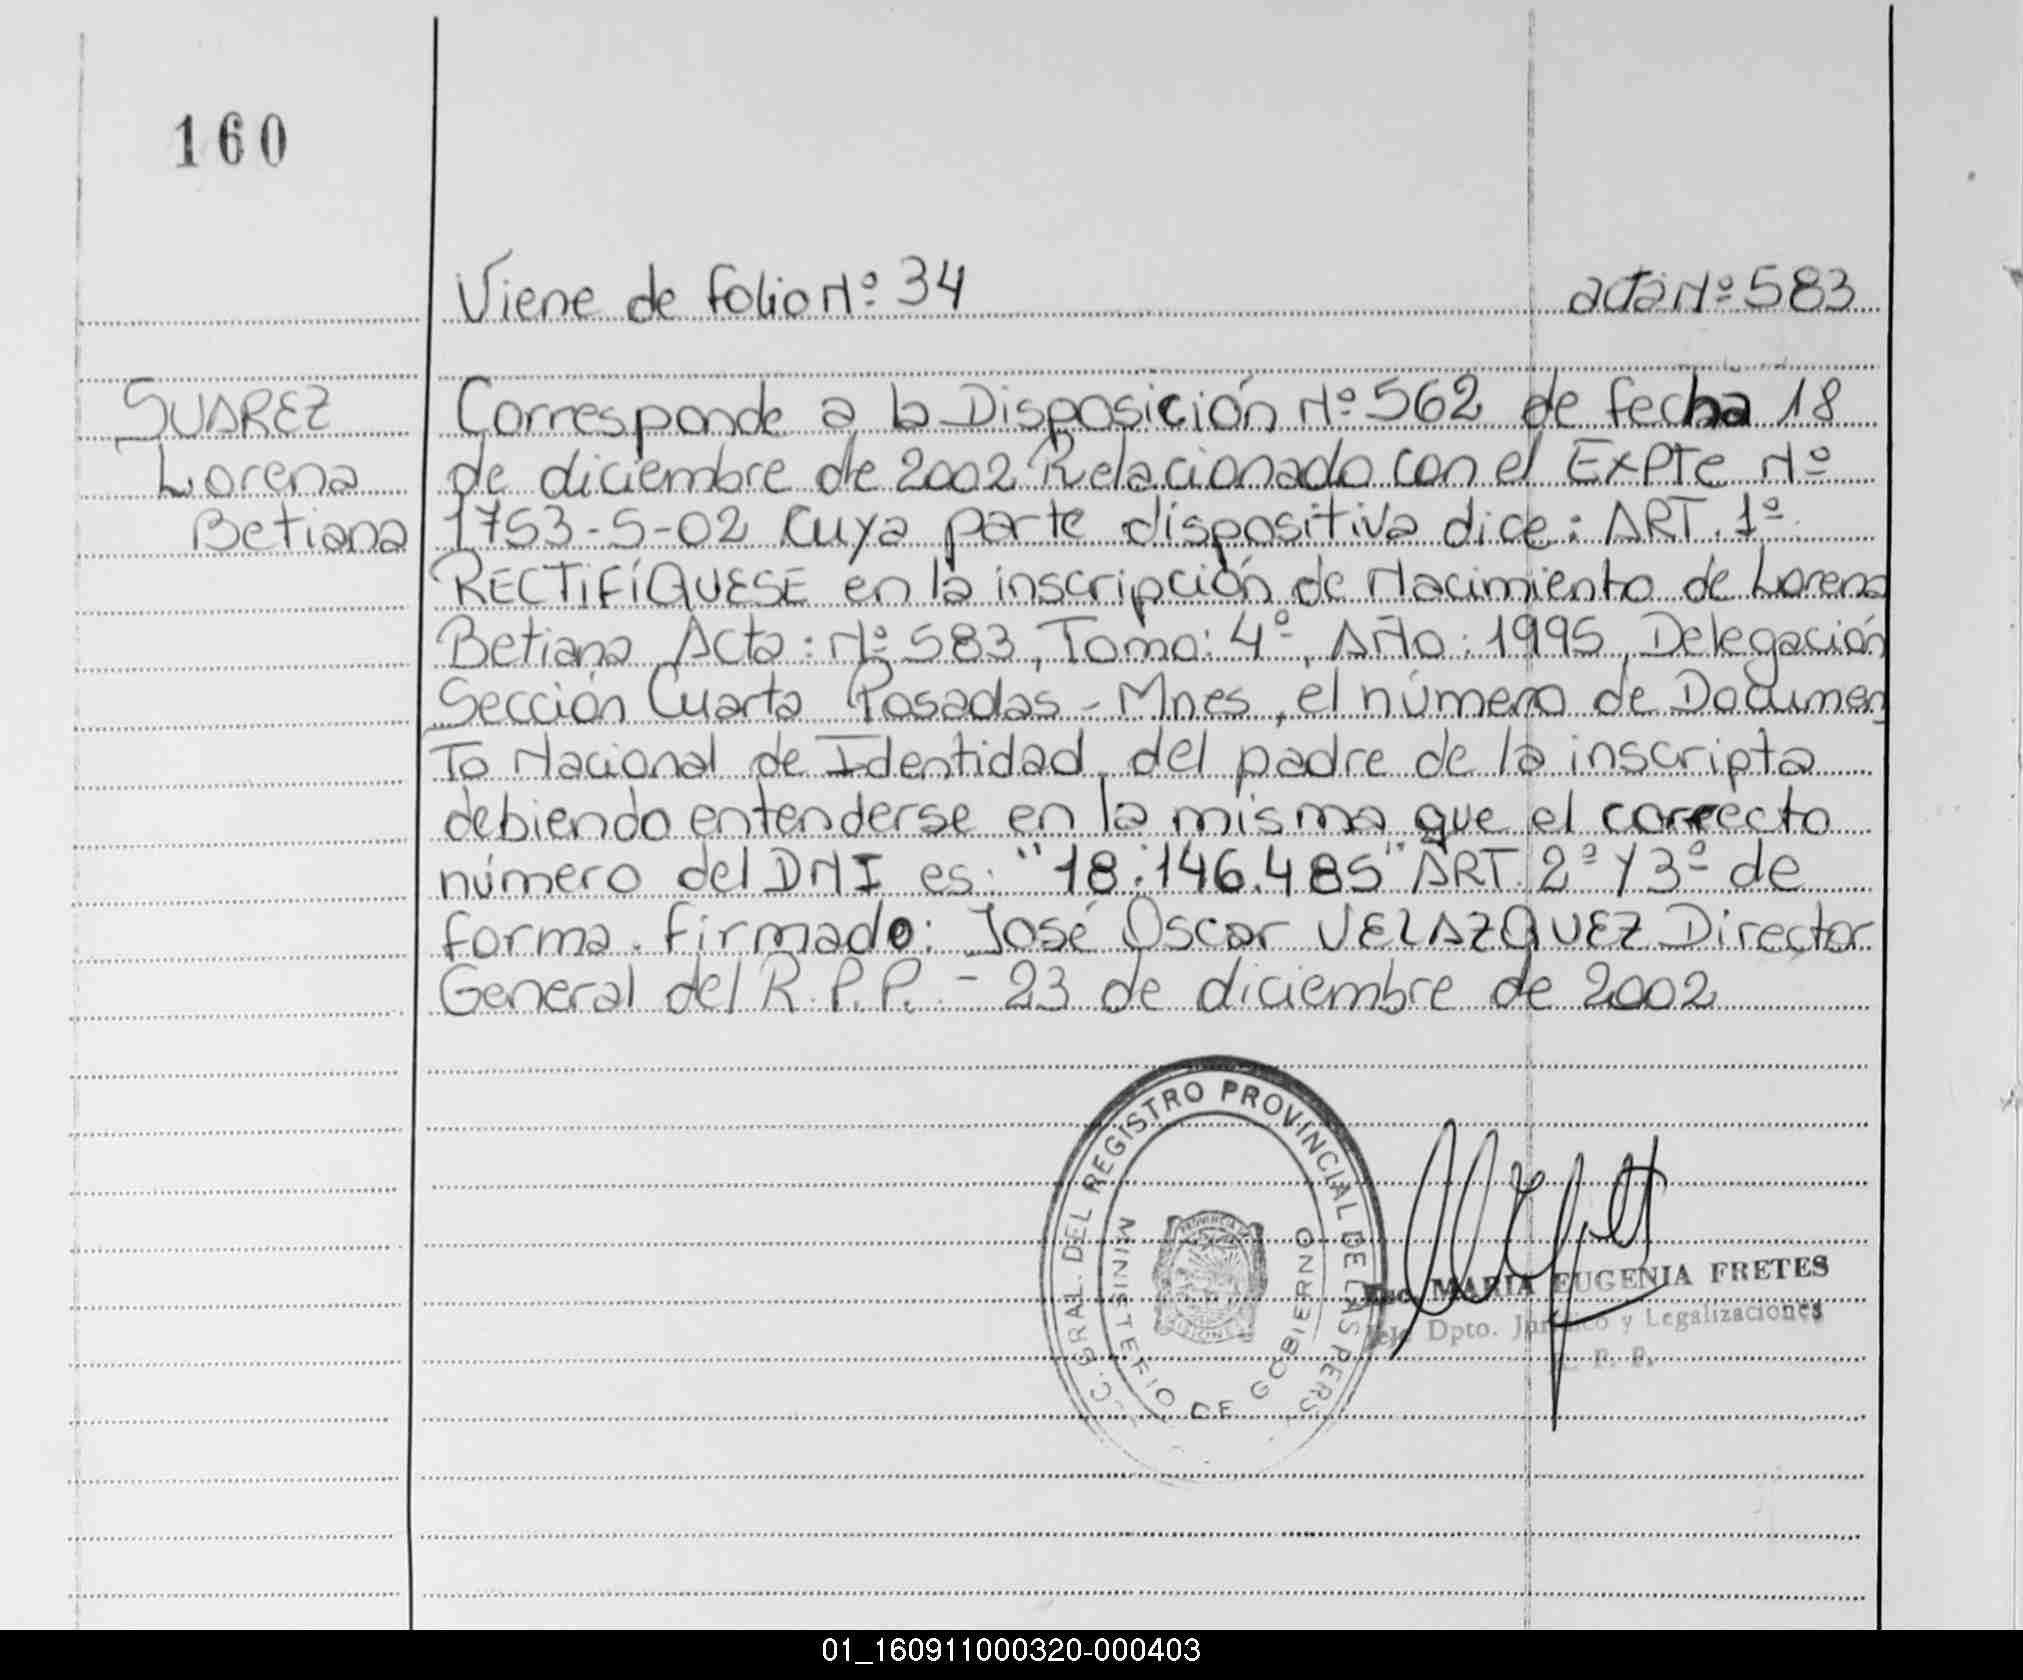 160
Viene de folio Nº: 34 acta Nº: 583
SUAREZ
Lorena
Betiana
Corresponde a la Disposición Nº: 562 de fecha 18
de diciembre de 2002 Relacionado con el EXPTE Nº
1753-S-02 cuya parte dispositiva dice: ART. 1º
RECTIFÍQUESE en la inscripción de Nacimiento de Lorena
Betiana Acta: Nº: 583, Tomo: 4º, AÑO: 1995, Delegación
Sección Cuarta Posadas - Mnes, el número de Documen
To Nacional de Identidad, del padre de la inscripta
debiendo entenderse en la misma que el correcto
número del DNI es: "18.146.485" ART. 2º Y 3º de
forma. Firmado: José Oscar VELAZQUEZ Director
General del R.P.P. - 23 de diciembre de 2002
GRAL. DEL REGISTRO PROVINCIAL DE LAS PERS
MINISTERIO DE GOBIERNO
PROVINCIA DE
MISIONES
Esc. MARIA EUGENIA FRETES
Jefe Dpto. Jurídico y Legalizaciones
R. P. P.
01_160911000320-000403